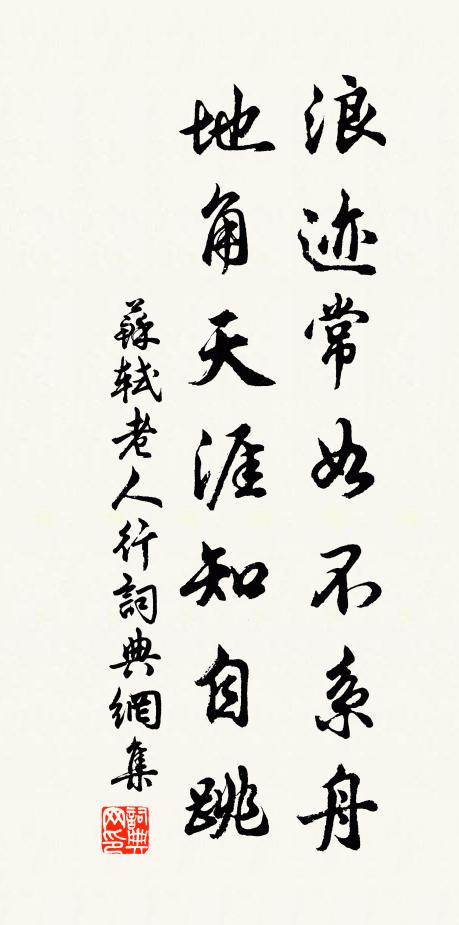 浪迹常如不系舟
地角天涯知自跳
蘇軾老人行詞典網集
詞典網印